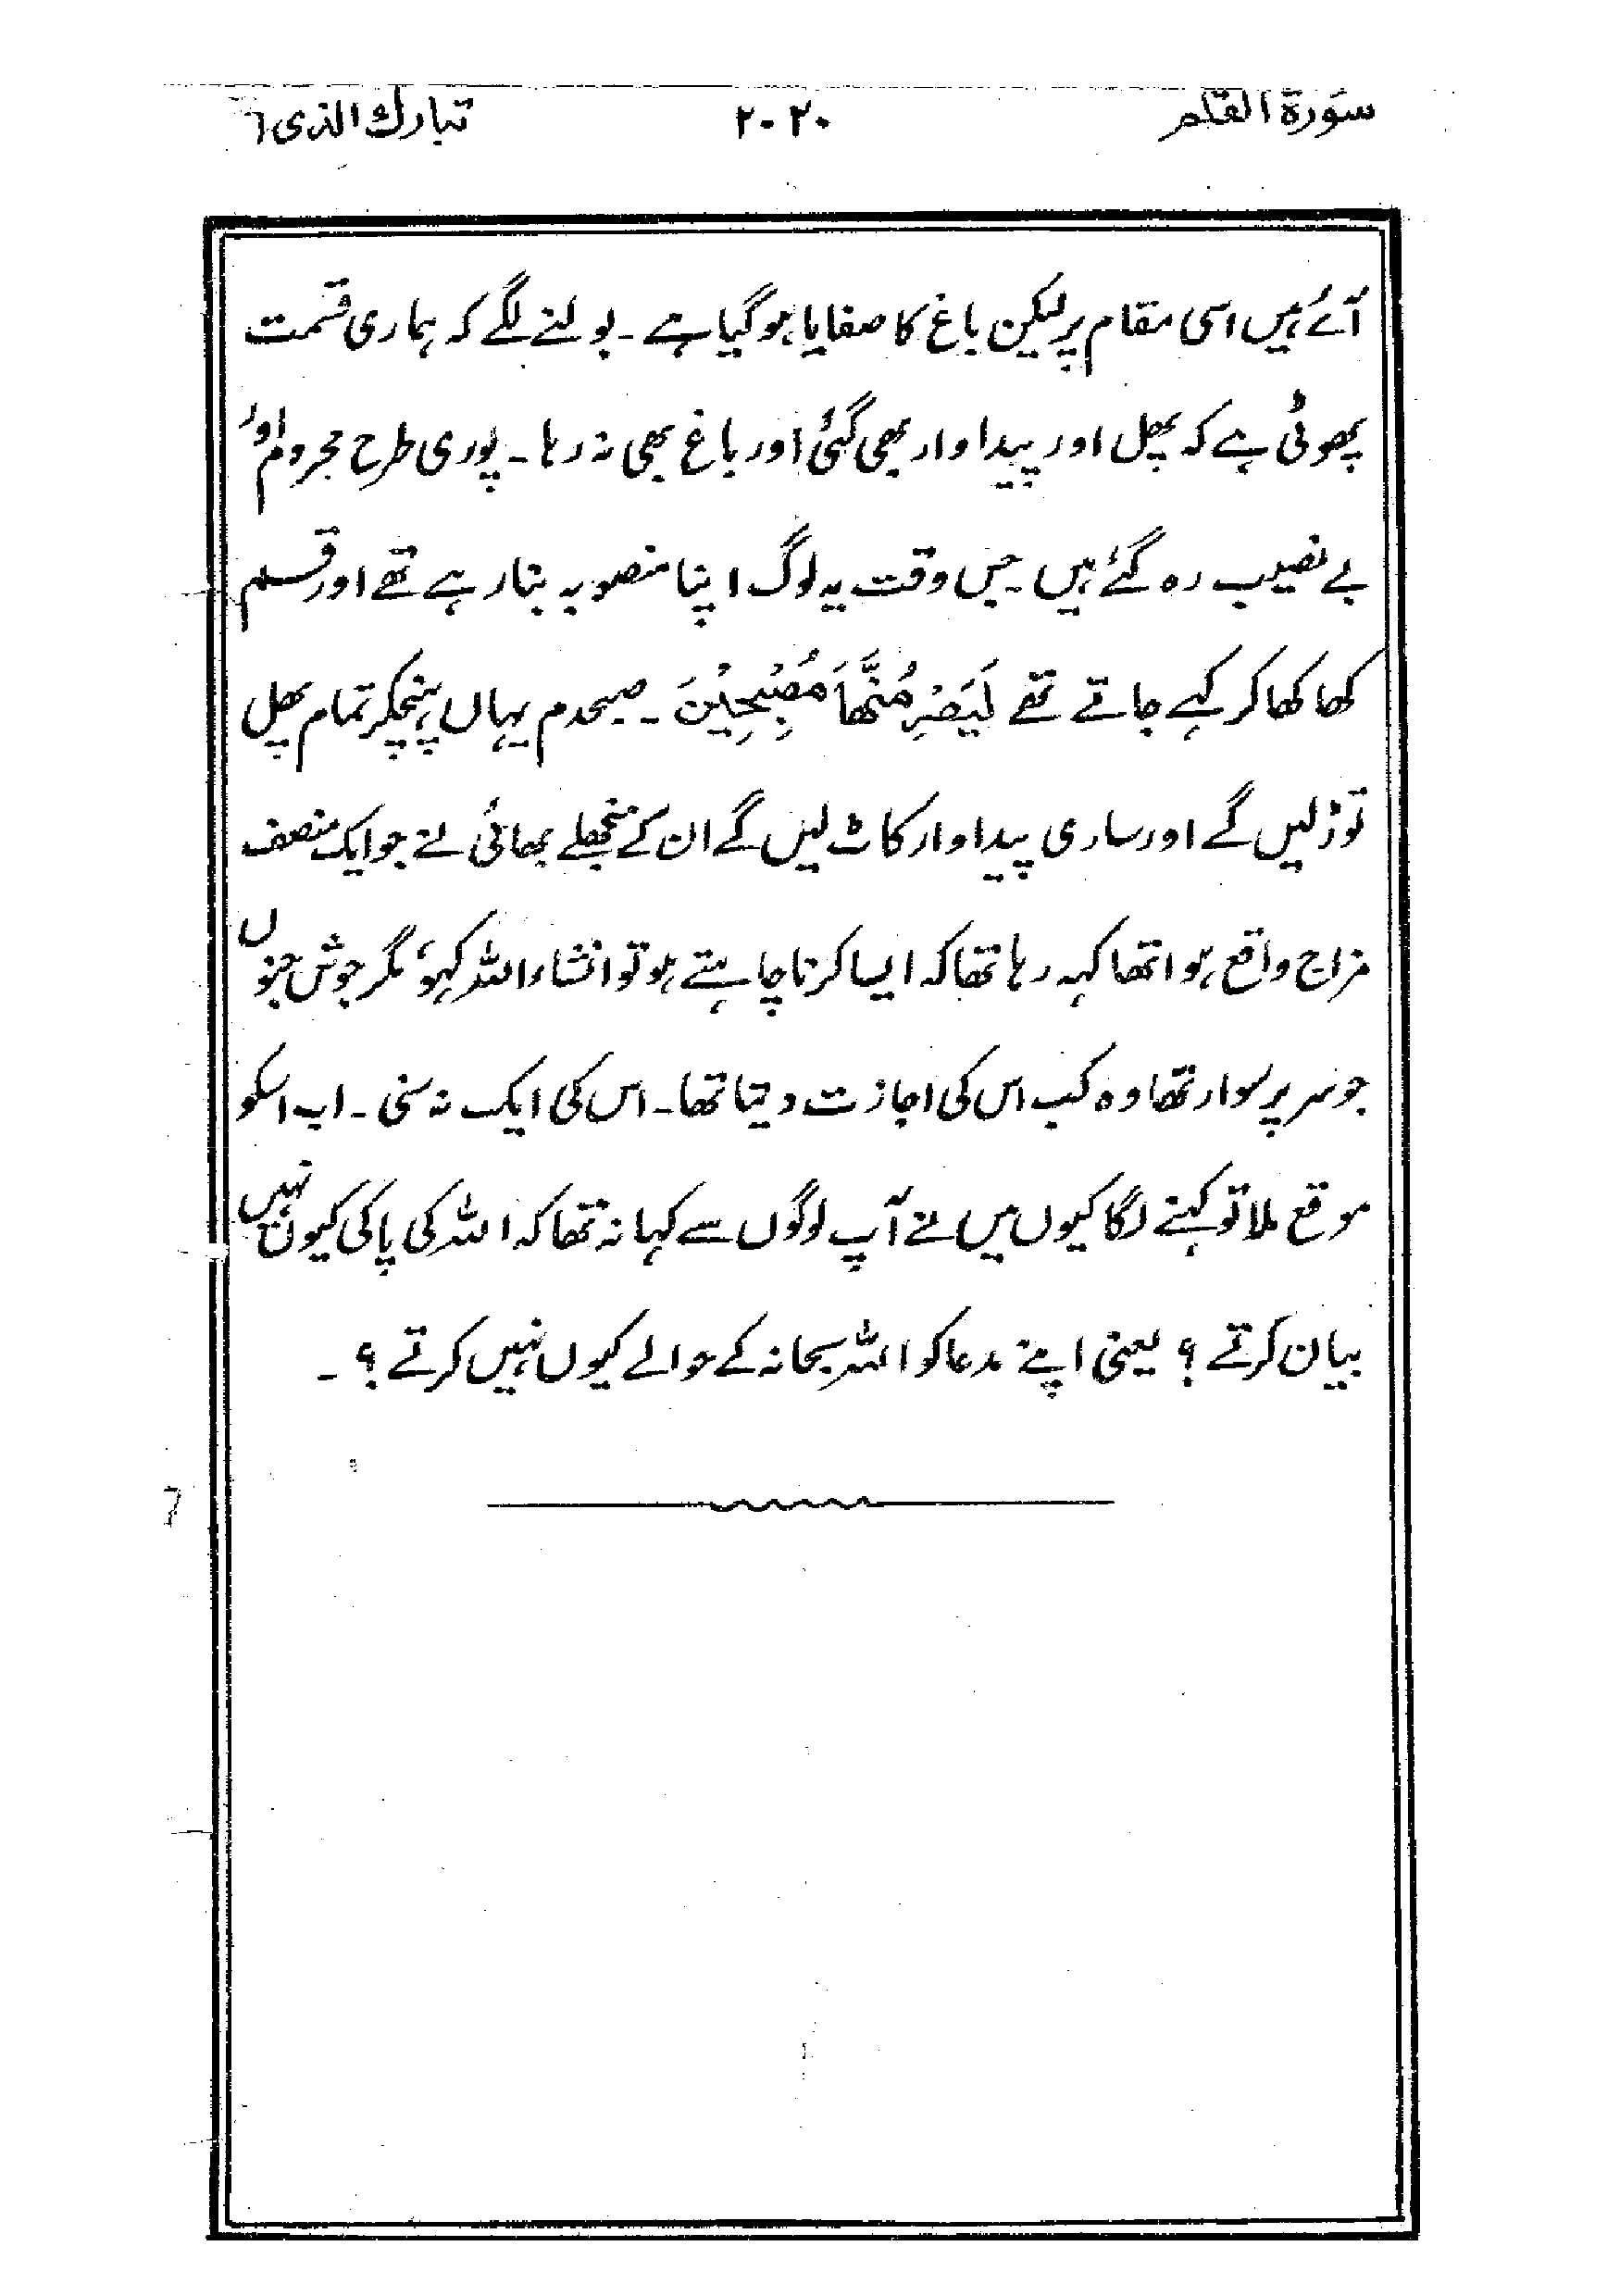 سورة القلم ۲۰۲۰ تبارك الذى
آئے ہیں اسی مقام پر لیکن باغ کا صفایا ہو گیا ہے ۔ بولنے لگے کہ ہماری قسمت
پھوٹی ہے کہ پھل اور پیداوار بھی گئی اور باغ بھی نہ رہا ۔ پوری طرح محروم اور
بے نصیب رہ گئے ہیں ۔ جس وقت یہ لوگ اپنا منصوبہ بنا رہے تھے اور قسم
کھا کھا کر کہے جاتے تھے لَيَصْرِمُنَّهَا مُصْبِحِيْنَ ۔ صبحدم یہاں پہنچکر تمام پھل
توڑ لیں گے اور ساری پیداوار کاٹ لیں گے ان کے منجھلے بھائی نے جو ایک منصف
مزاج واقع ہوا تھا کہہ رہا تھا کہ ایسا کرنا چاہتے ہو تو انشاء اللہ کہو، مگر جوش جنوں
جو سر پر سوار تھا وہ کب اس کی اجازت دیتا تھا ۔ اس کی ایک نہ سنی ۔ اب اسکو
موقع ملا تو کہنے لگا کیوں میں نے آپ لوگوں سے کہا نہ تھا کہ اللہ کی پاکی کیوں نہیں
بیان کرتے ؟ یعنی اپنے مدعا کو اللہ سبحانہ کے حوالے کیوں نہیں کرتے ؟ ۔